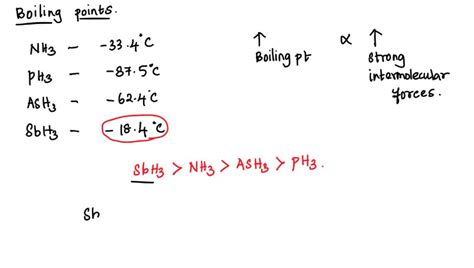 Boiling points.
NH₃ – -33.4°C
PH₃ – -87.5°C
AsH₃ – -62.4°C
SbH₃ – -18.4°C
↑ Boiling pt ∝ ↑ strong intermolecular forces.
SbH₃ > NH₃ > AsH₃ > PH₃.
Sb